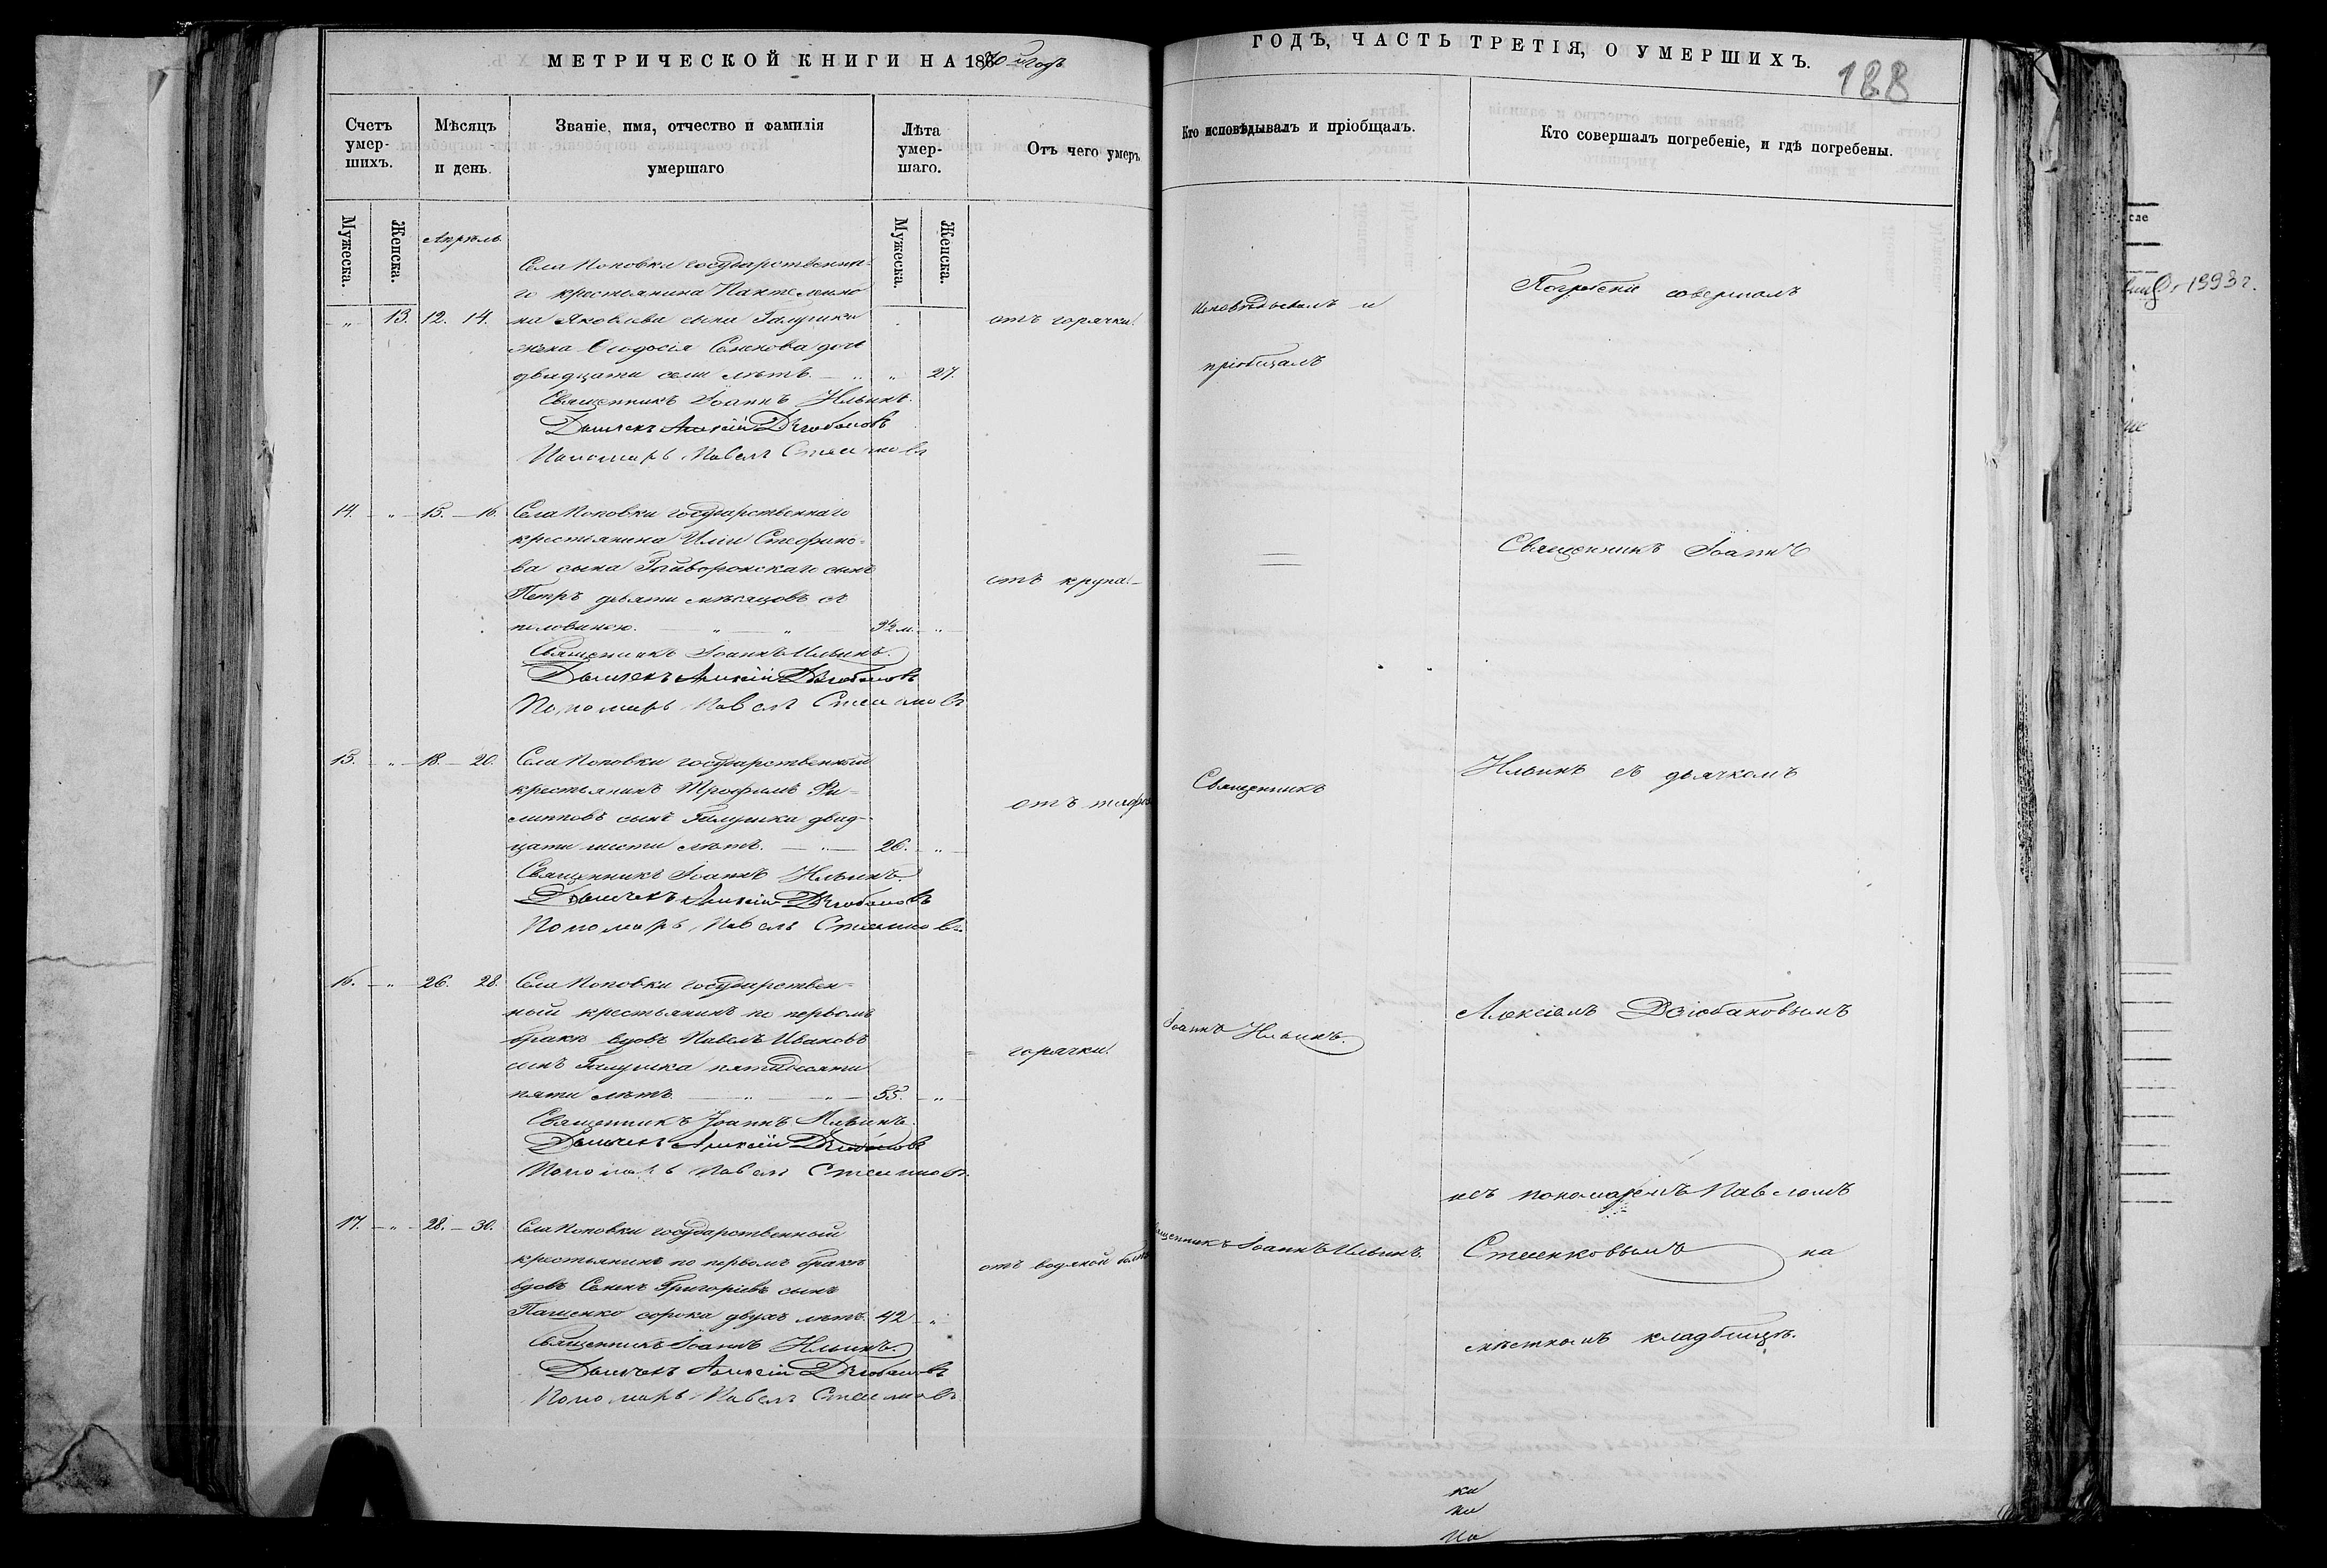 МЕТРИЧЕСКОЙ КНИГИ НА 1870й годъ
Счетъ умер-шихъ.
Мѣсяцъ и день.
Званіе, имя, отчество и фамилія умершаго
Лѣта умер-шаго.
Отъ чего умеръ
Мужеска.
Женска.
Мужеска.
Женска.
Апрѣль.
Села Поповки государственна-
го крестьянина Пантелеимо
„ 13. 12. 14. на Яковлева сына Галушки отъ горячки.
жена Ѳеодосія Семенова дочь
двадцати семи лѣтъ. „ „ 27.
Священникъ Іоаннъ Ильинъ.
Дьячекъ Алексій Дзюбановъ
Пономарь Павелъ Стеенковъ
14. „ 15. 16. Села Поповки государственнаго
крестьянина Иліи Стефано-
ва сына Гайворонскаго сынъ
Петръ девяти мѣсяцовъ съ отъ крупа.
половиною. „ „ 9½ м. „
Священникъ Іоаннъ Ильинъ.
Дьячекъ Алексій Дзюбановъ
Пономарь Павелъ Стеенковъ
15. „ 18. 20. Села Поповки государственный
крестьянинъ Трофимъ Фи-
липповъ сынъ Галушка двад- отъ тифа
цати шести лѣтъ. „ 26. „
Священникъ Іоаннъ Ильинъ.
Дьячекъ Алексій Дзюбановъ
Пономарь Павелъ Стеенковъ
16. „ 26. 28. Села Поповки государствен-
ный крестьянинъ по первомъ
бракѣ вдовъ Павелъ Ивановъ
сынъ Галушка пятидесяти горячки.
пяти лѣтъ „ „ 55. „
Священникъ Іоаннъ Ильинъ.
Дьячекъ Алексій Дзюбановъ
Пономарь Павелъ Стеенковъ
17. „ 28. 30. Села Поповки государственный
крестьянинъ по первомъ бракѣ отъ водяной
вдовъ Семенъ Григоріевъ сынъ
Пащенко сорока двухъ лѣтъ. 42 „
Священникъ Іоаннъ Ильинъ.
Дьячекъ Алексій Дзюбановъ
Пономарь Павелъ Стеенковъ
ГОДЪ, ЧАСТЬ ТРЕТІЯ, О УМЕРШИХЪ.
188
Кто исповѣдывалъ и пріобщалъ.
Кто совершалъ погребеніе, и гдѣ погребены.
Исповѣдывалъ и
пріобщалъ
Священникъ
Іоаннъ Ильинъ.
Священникъ Іоаннъ Ильинъ.
Погребеніе совершалъ
Священникъ Іоаннъ
Ильинъ съ дьячкомъ
Алексіемъ Дзюбановымъ
и съ пономаремъ Павломъ
Стеенковымъ на
мѣстномъ кладбищѣ.
1993 г.